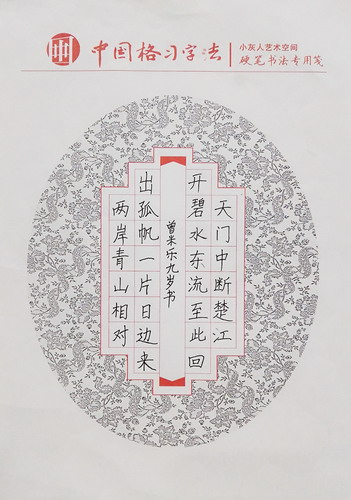 中国格习字法
小灰人艺术空间
硬笔书法专用笺
天门中断楚江
开碧水东流至此回
两岸青山相对
出孤帆一片日边来
曾米乐九岁书